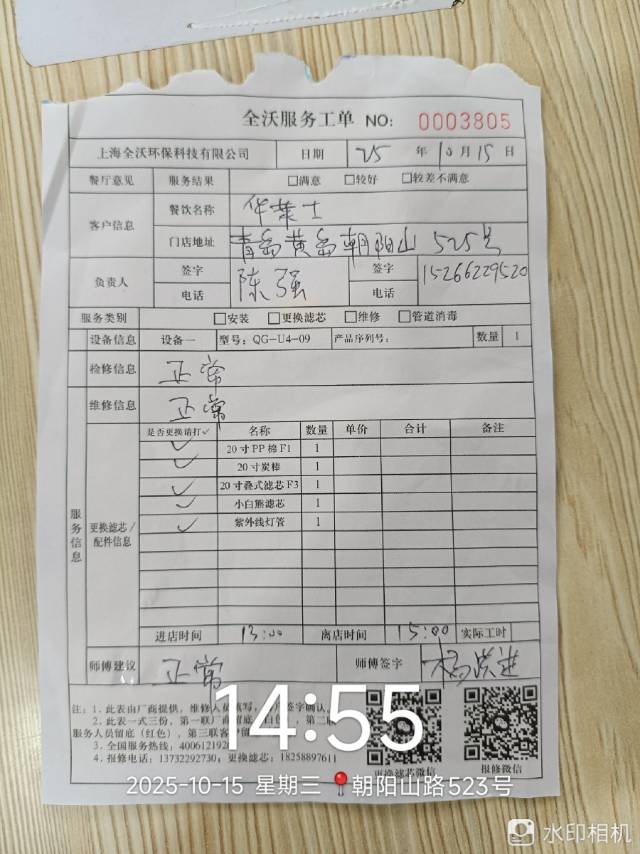 全沃服务工单 NO: 0003805
上海全沃环保科技有限公司 日期 25 年 10 月 15 日
餐厅意见 服务结果 □满意 □较好 □较差不满意
客户信息 餐饮名称 华莱士
门店地址 青岛黄岛朝阳山 525号
负责人 签字 陈强 签字 15266229520
电话 电话
服务类别 □安装 □更换滤芯 □维修 □管道消毒
设备信息 设备一 型号: QG-U4-09 产品序列号: 数量 1
检修信息 正常
维修信息 正常
服务信息 更换滤芯/配件信息
是否更换请打✓ 名称 数量 单价 合计 备注
✓ 20寸PP棉F1 1
✓ 20寸炭棒 1
✓ 20寸叠式滤芯F3 1
✓ 小白熊滤芯 1
✓ 紫外线灯管 1
进店时间 13:00 离店时间 15:00 实际工时
师傅建议 正常 师傅签字
注: 1. 此表由厂商提供, 维修人员填写, 签字确认
2. 此表一式三份, 第一联厂商留底 白色 第二联
服务人员留底(红色), 第三联客户留
3. 全国服务热线: 400612192
4. 报修电话: 13732292730, 更换滤芯: 18258897611
更换滤芯微信 报修微信
14:55
2025-10-15 星期三 朝阳山路523号
水印相机